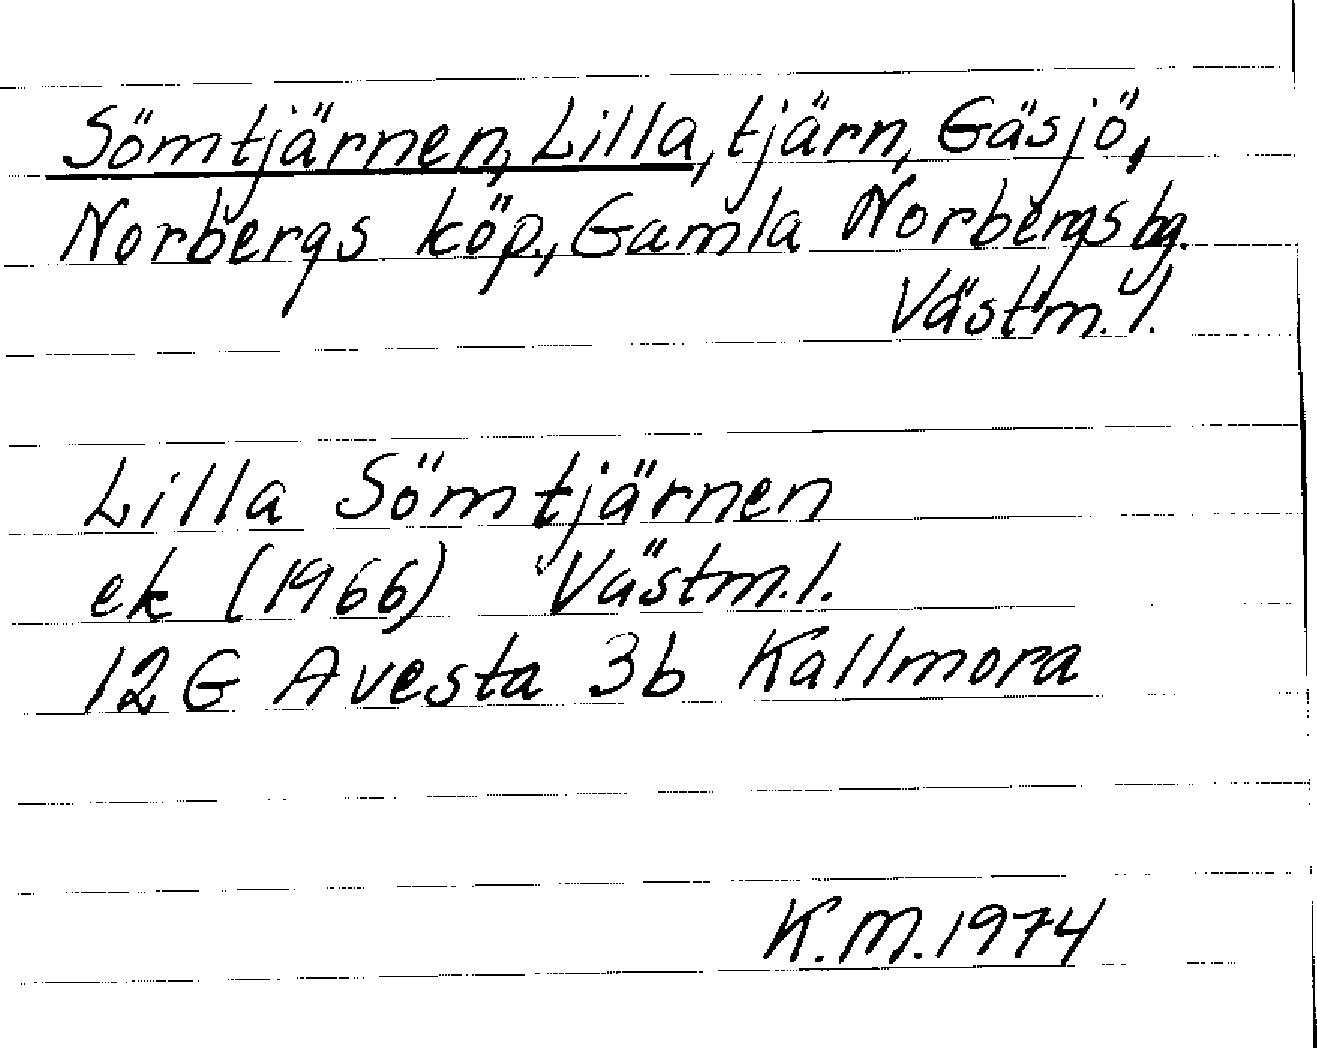 Sömtjärnen, Lilla, tjärn, Gäsjö,
Norbergs köp., Gamla Norbergs bg.
Västm. l.
Lilla Sömtjärnen
ek (1966) Västm. l.
12 G Avesta 3b Kallmora
K.M. 1974